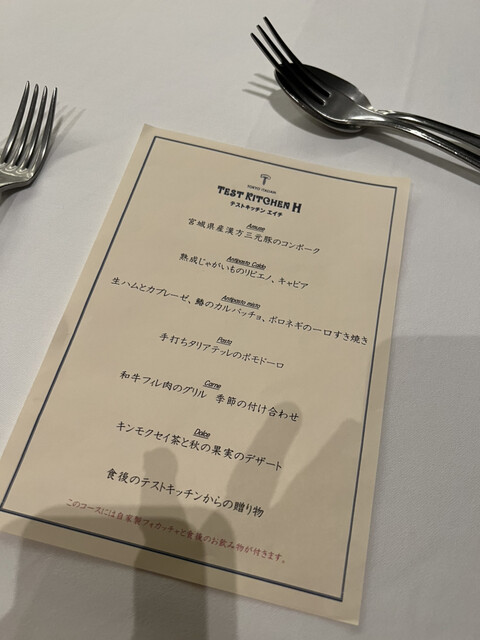 TOKYO ITALIAN
TEST KITCHEN H
テストキッチン エイチ
Amuse
宮城県産漢方三元豚のコンポーク
Antipasto Caldo
熟成じゃがいものリピエノ、キャビア
Antipasto misto
生ハムとカプレーゼ、鰆のカルパッチョ、ポロネギの一口すき焼き
Pasta
手打ちタリアテッレのポモドーロ
Carne
和牛フィレ肉のグリル 季節の付け合わせ
Dolce
キンモクセイ茶と秋の果実のデザート
食後のテストキッチンからの贈り物
このコースには自家製フォカッチャと食後のお飲み物が付きます。